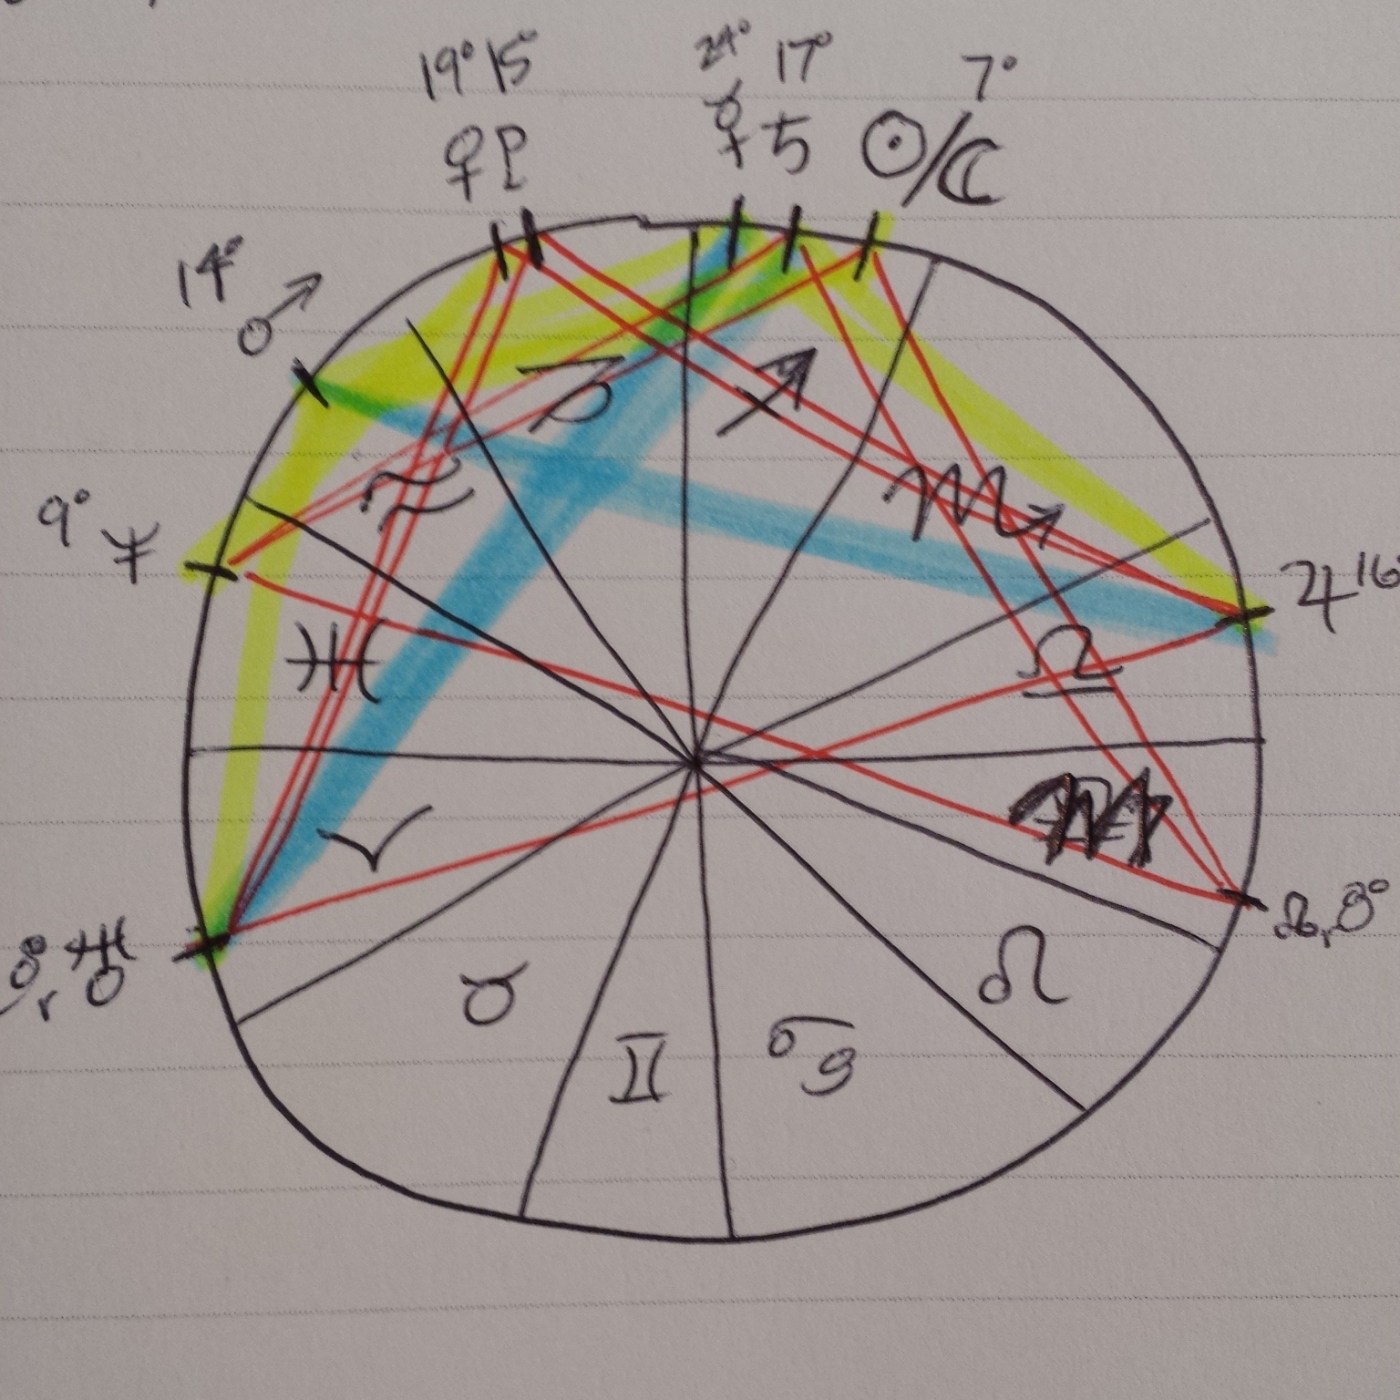 19° 15° 24° 17° 7°
♀ ♇ ☿ ♄ ☉/☾
14° ♂
9° ♆
♑ ♐
♒ ♏
♃ 16
♓ ♎
♈
♅ ☊, 8°
♉ ♊ ♋ ♌